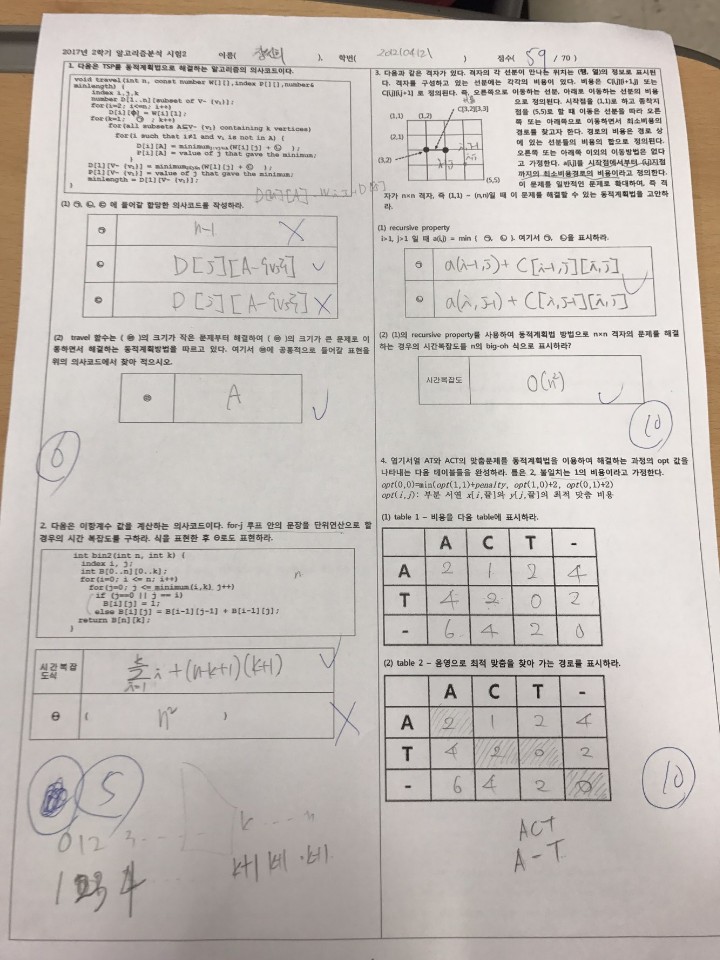 2017년 2학기 알고리즘분석 시험2 이름( ), 학번( ) 점수( 59 / 70 )
1. 다음은 TSP를 동적계획법으로 해결하는 알고리즘의 의사코드이다.
void travel(int n, const number W[][],index P[][],number&
minlength) {
index i,j,k
number D[1..n][subset of V- {v₁}];
for(i=2; i<=n; i++)
D[i][Φ] = W[i][1];
for(k=1; ㉠ ; k++)
for(all subsets A⊆V- {v₁} containing k vertices)
for(i such that i≠1 and vᵢ is not in A) {
D[i][A] = minimum (W[i][j] + ㉡ );
P[i][A] = value of j that gave the minimum;
}
D[1][V- {v₁}] = minimum (W[1][j] + ㉢ );
P[1][V- {v₁}] = value of j that gave the minimum;
minlength = D[1][V- {v₁}];
}
(1) ㉠, ㉡, ㉢ 에 들어갈 합당한 의사코드를 작성하라.
㉠ n-1
㉡ D[j][A-{vj}]
㉢ D[j][A-{vj}]
(2) travel 함수는 ( ㉣ )의 크기가 작은 문제부터 해결하여 ( ㉣ )의 크기가 큰 문제로 이
동하면서 해결하는 동적계획방법을 따르고 있다. 여기서 ㉣에 공통적으로 들어갈 표현을
위의 의사코드에서 찾아 적으시오.
㉣ A
6
2. 다음은 이항계수 값을 계산하는 의사코드이다. for-j 루프 안의 문장을 단위연산으로 할
경우의 시간 복잡도를 구하라. 식을 표현한 후 Θ로도 표현하라.
int bin2(int n, int k) {
index i, j;
int B[0..n][0..k];
for(i=0; i <= n; i++)
for(j=0; j <= minimum(i,k) j++)
if (j==0 || j == i)
B[i][j] = 1;
else B[i][j] = B[i-1][j-1] + B[i-1][j];
return B[n][k];
}
n
시간복잡
도식 Σ i + (n-k+1)(k+1)
Θ ( n² )
5
3. 다음과 같은 격자가 있다. 격자의 각 선분이 만나는 위치는 (행, 열)의 정보로 표시된
다. 격자를 구성하고 있는 선분에는 각각의 비용이 있다. 비용은 C[i,j][i+1,j] 또는
C[i,j][i,j+1] 로 정의된다. 즉, 오른쪽으로 이동하는 선분, 아래로 이동하는 선분의 비용
으로 정의된다. 시작점을 (1,1)로 하고 종착지
점을 (5,5)로 할 때 이동은 선분을 따라 오른
쪽 또는 아래쪽으로 이동하면서 최소비용의
경로를 찾고자 한다. 경로의 비용은 경로 상
에 있는 선분들의 비용의 합으로 정의된다.
오른쪽 또는 아래쪽 이외의 이동방법은 없다
고 가정한다. a(i,j)를 시작점에서부터 (i,j)지점
까지의 최소비용경로의 비용이라고 정의한다.
이 문제를 일반적인 문제로 확대하여, 즉 격
자가 n×n 격자, 즉 (1,1) – (n,n)일 때 이 문제를 해결할 수 있는 동적계획법을 고안하
라.
C[3,2][3,3]
(1,1) (1,2)
(2,1)
(3,2)
(5,5)
(1) recursive property
i>1, j>1 일 때 a(i,j) = min ( ㉠, ㉡ ). 여기서 ㉠, ㉡을 표시하라.
㉠ a(i-1,j) + C[i-1,j][i,j]
㉡ a(i,j-1) + C[i,j-1][i,j]
(2) (1)의 recursive property를 사용하여 동적계획법 방법으로 n×n 격자의 문제를 해결
하는 경우의 시간복잡도를 n의 big-oh 식으로 표시하라?
시간복잡도 O(n²)
10
4. 염기서열 AT와 ACT의 맞춤문제를 동적계획법을 이용하여 해결하는 과정의 opt 값을
나타내는 다음 테이블들을 완성하라. 틈은 2, 불일치는 1의 비용이라고 가정한다.
opt(0,0)=min(opt(1,1)+penalty, opt(1,0)+2, opt(0,1)+2)
opt(i,j): 부분 서열 x[i,끝]와 y[j,끝]의 최적 맞춤 비용
(1) table 1 – 비용을 다음 table에 표시하라.
A C T -
A 2 1 2 4
T 4 2 0 2
- 6 4 2 0
(2) table 2 – 음영으로 최적 맞춤을 찾아 가는 경로를 표시하라.
A C T -
A 2 1 2 4
T 4 2 0 2
- 6 4 2 0
10
ACT
A-T